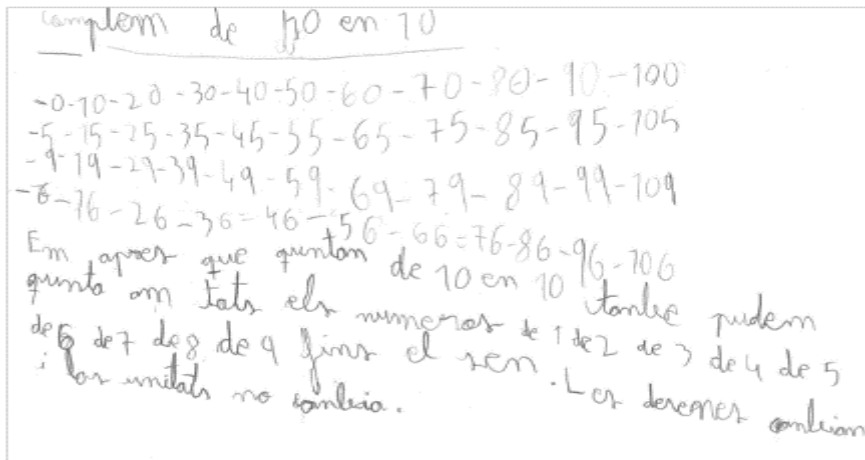 complem de 10 en 10
-0-10-20-30-40-50-60-70-80-90-100
-5-15-25-35-45-55-65-75-85-95-105
-9-19-29-39-49-59-69-79-89-99-109
-6-16-26-36-46-56-66-76-86-96-106
Em apres que quntan de 10 en 10 tambe pudem
qunta am tots els numeros de 1 de 2 de 3 de 4 de 5
de 6 de 7 de 8 de 9 fins el sen. Les desenes canbian
i las unitats no canbia.